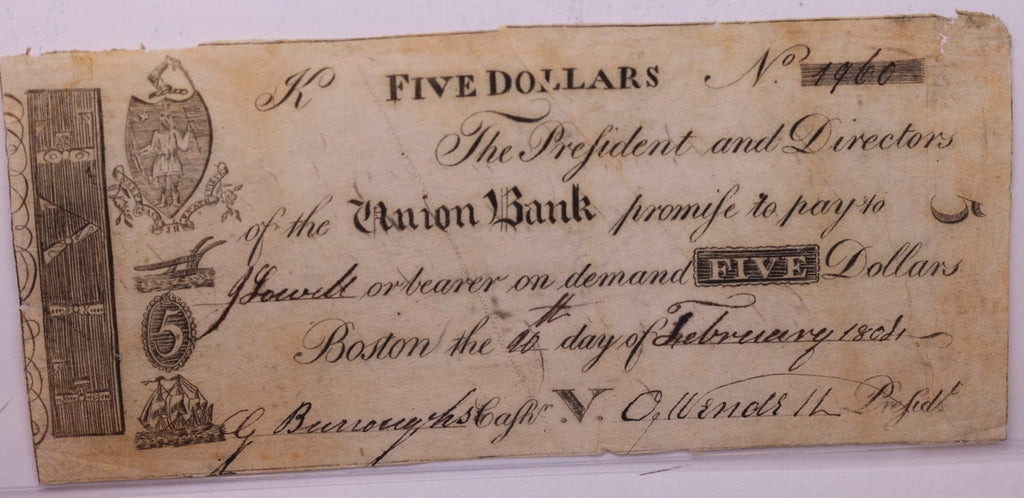 K FIVE DOLLARS No. 1960
The Preſident and Directors
of the Union Bank promiſe to pay to
J Lowell or bearer on demand FIVE Dollars
Boston the 10th day of February 1804
G Burroughs Cashr. V. O, Wendell Preſidt.
5
FIVE